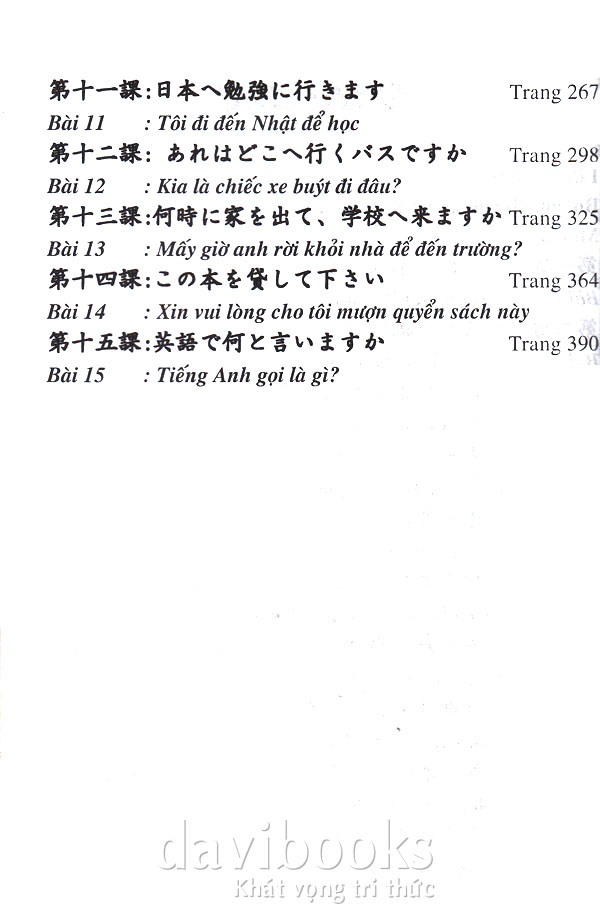 第十一課:日本へ勉強に行きます Trang 267
Bài 11 : Tôi đi đến Nhật để học
第十二課: あれはどこへ行くバスですか Trang 298
Bài 12 : Kia là chiếc xe buýt đi đâu?
第十三課:何時に家を出て、学校へ来ますか Trang 325
Bài 13 : Mấy giờ anh rời khỏi nhà để đến trường?
第十四課:この本を貸して下さい Trang 364
Bài 14 : Xin vui lòng cho tôi mượn quyển sách này
第十五課:英語で何と言いますか Trang 390
Bài 15 : Tiếng Anh gọi là gì?
davibooks
Khát vọng tri thức